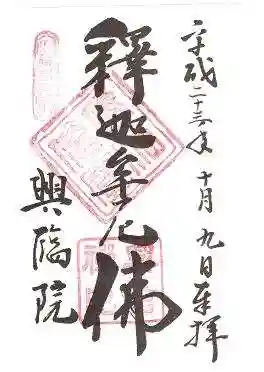 平成二十三年十月九日奉拝
釋迦牟尼佛
興臨院